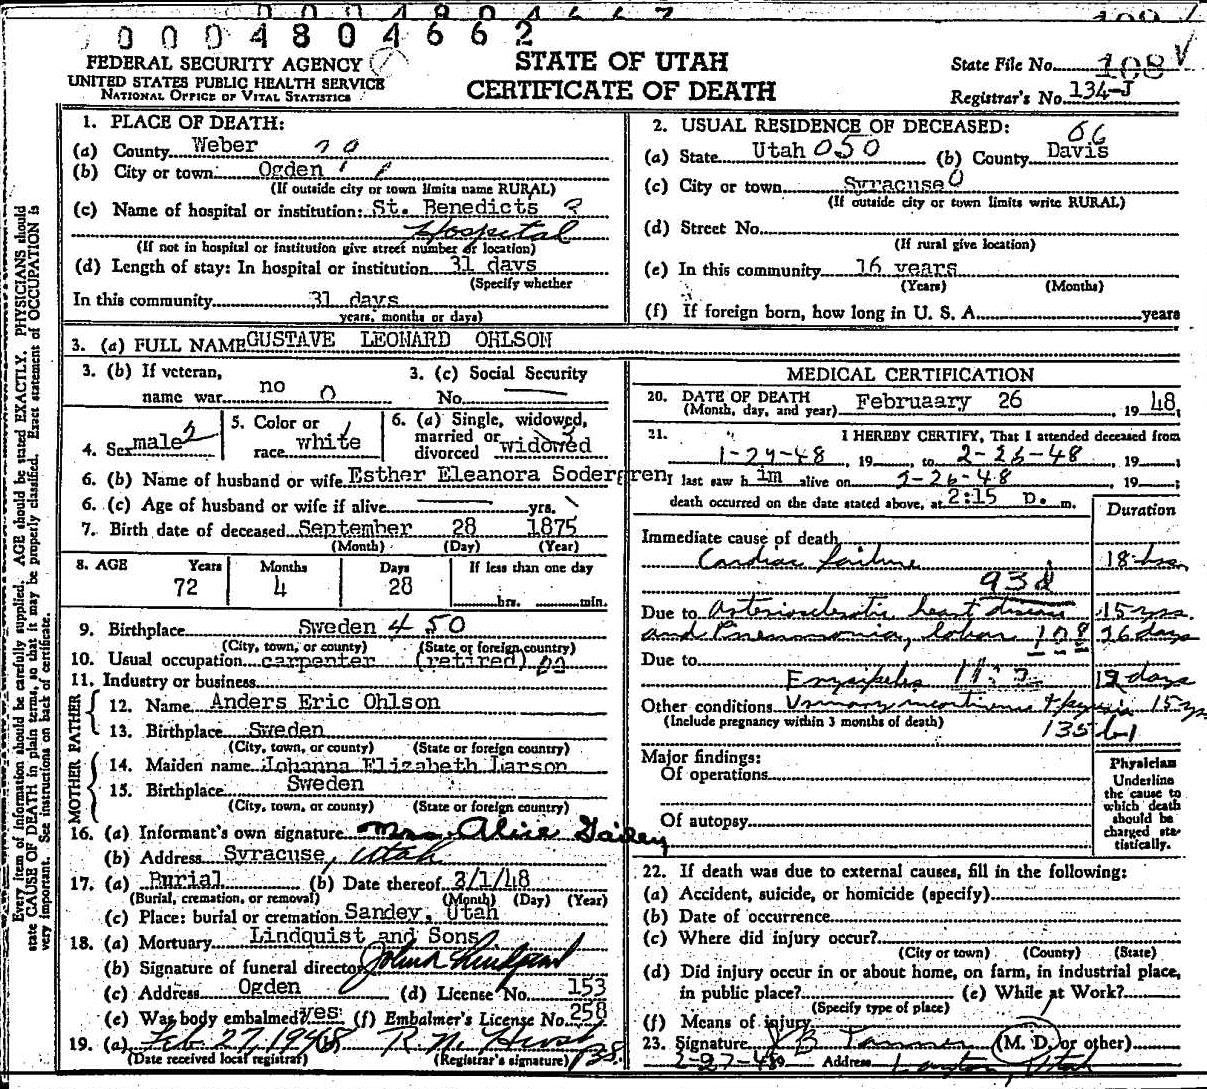 0 0 0 4 8 0 4 6 6 2
FEDERAL SECURITY AGENCY
UNITED STATES PUBLIC HEALTH SERVICE
NATIONAL OFFICE OF VITAL STATISTICS
STATE OF UTAH
CERTIFICATE OF DEATH
State File No. 108
Registrar's No. 134-J
Every item of information should be carefully supplied. AGE should be stated EXACTLY. PHYSICIANS should
state CAUSE OF DEATH in plain terms, so that it may be properly classified. Exact statement of OCCUPATION is
very important. See instructions on back of certificate.
1. PLACE OF DEATH:
(a) County Weber
(b) City or town: Ogden
(If outside city or town limits name RURAL)
(c) Name of hospital or institution: St. Benedicts
Hospital
(If not in hospital or institution give street number or location)
(d) Length of stay: In hospital or institution 31 days
(Specify whether
In this community 31 days
years, months or days)
2. USUAL RESIDENCE OF DECEASED: 06
(a) State Utah 050 (b) County Davis
(c) City or town Syracuse 0
(If outside city or town limits write RURAL)
(d) Street No.
(If rural give location)
(e) In this community 16 years
(Years) (Months)
(f) If foreign born, how long in U. S. A. years
3. (a) FULL NAME GUSTAVE LEONARD OHLSON
3. (b) If veteran,
name war no 0
3. (c) Social Security
No.
4. Sex male
5. Color or
race white
6. (a) Single, widowed,
married or
divorced widowed
6. (b) Name of husband or wife Esther Eleanora Sodergren
6. (c) Age of husband or wife if alive yrs.
7. Birth date of deceased September 28 1875
(Month) (Day) (Year)
8. AGE Years Months Days If less than one day
72 4 28
hrs. min.
9. Birthplace Sweden 450
(City, town, or county) (State or foreign country)
10. Usual occupation carpenter (retired)
11. Industry or business
FATHER
12. Name Anders Eric Ohlson
13. Birthplace Sweden
(City, town, or county) (State or foreign country)
MOTHER
14. Maiden name Johanna Elizabeth Larson
15. Birthplace Sweden
(City, town, or county) (State or foreign country)
16. (a) Informant's own signature Mrs. Alice Gailey
(b) Address Syracuse, Utah
17. (a) Burial (b) Date thereof 3/1/48
(Burial, cremation, or removal) (Month) (Day) (Year)
(c) Place: burial or cremation Sandey, Utah
18. (a) Mortuary Lindquist and Sons
(b) Signature of funeral director John Lindquist
(c) Address Ogden (d) License No. 153
(e) Was body embalmed? yes (f) Embalmer's License No. 258
19. (a) Feb 27, 1948
(Date received local registrar) (Registrar's signature)
MEDICAL CERTIFICATION
20. DATE OF DEATH
(Month, day, and year) Februaary 26, 19 48
21. I HEREBY CERTIFY, That I attended deceased from
1-27-48, 19 to 2-26-48, 19
I last saw h im alive on 2-26-48, 19
death occurred on the date stated above, at 2:15 P. m.
Duration
Immediate cause of death
Cardiac failure 18 hrs
93d
Due to Arteriosclerotic heart disease 15 yrs
and Pneumonia, lobar 108 26 days
Due to
Erysipelas days
Other conditions Urinary incontinence + pyuria 15 yrs
(Include pregnancy within 3 months of death)
Major findings:
Of operations
Of autopsy
Physician
Underline
the cause to
which death
should be
charged sta-
tistically.
22. If death was due to external causes, fill in the following:
(a) Accident, suicide, or homicide (specify)
(b) Date of occurrence
(c) Where did injury occur?
(City or town) (County) (State)
(d) Did injury occur in or about home, on farm, in industrial place,
in public place? (e) While at Work?
(Specify type of place)
(f) Means of injury
23. Signature Tanner (M. D. or other)
2-27-48 Address Layton, Utah